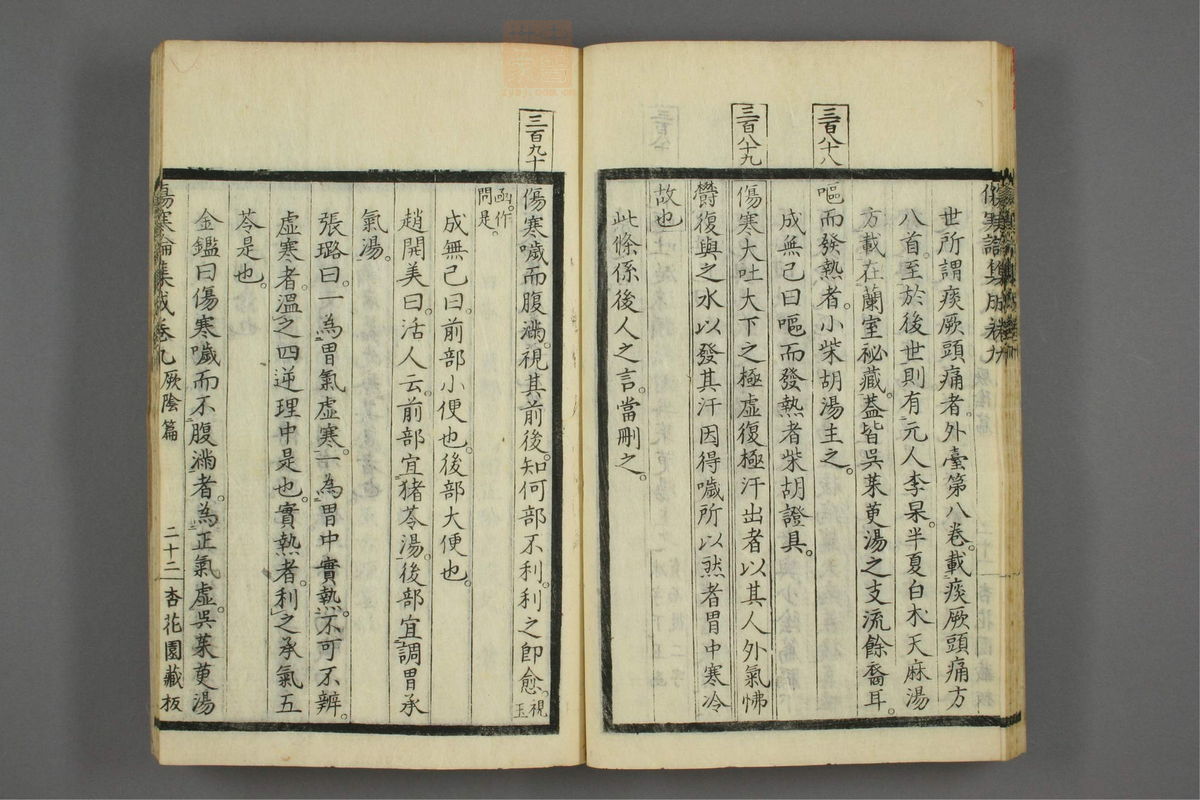 世所謂痰厥頭痛者。外臺第八卷。載痰厥頭痛方
八首。至於後世則有元人李杲。半夏白朮天麻湯
方。載在蘭室祕藏。蓋皆吳茱萸湯之支流餘裔耳。
三百八十八
嘔而發熱者。小柴胡湯主之。
成無己曰嘔而發熱者柴胡證具。
三百八十九
傷寒大吐大下之極虛復極汗出者以其人外氣怫
欝復與之水以發其汗因得噦所以然者胃中寒冷
故也
此條係後人之言。當刪之。
三百九十
傷寒噦而腹滿。視其前後。知何部不利。利之即愈。視玉
函。作問是。
成無己曰。前部小便也。後部大便也。
趙開美曰。活人云。前部宜猪苓湯。後部宜調胃承
氣湯。
張璐曰。一為胃氣虛寒。一為胃中實熱。不可不辨。
虛寒者。溫之四逆理中是也。實熱者。利之承氣五
苓是也。
金鑑曰傷寒噦而不腹滿者。為正氣虛。吳茱萸湯
傷寒論集成卷九 厥陰篇 二十二 杏花園藏板